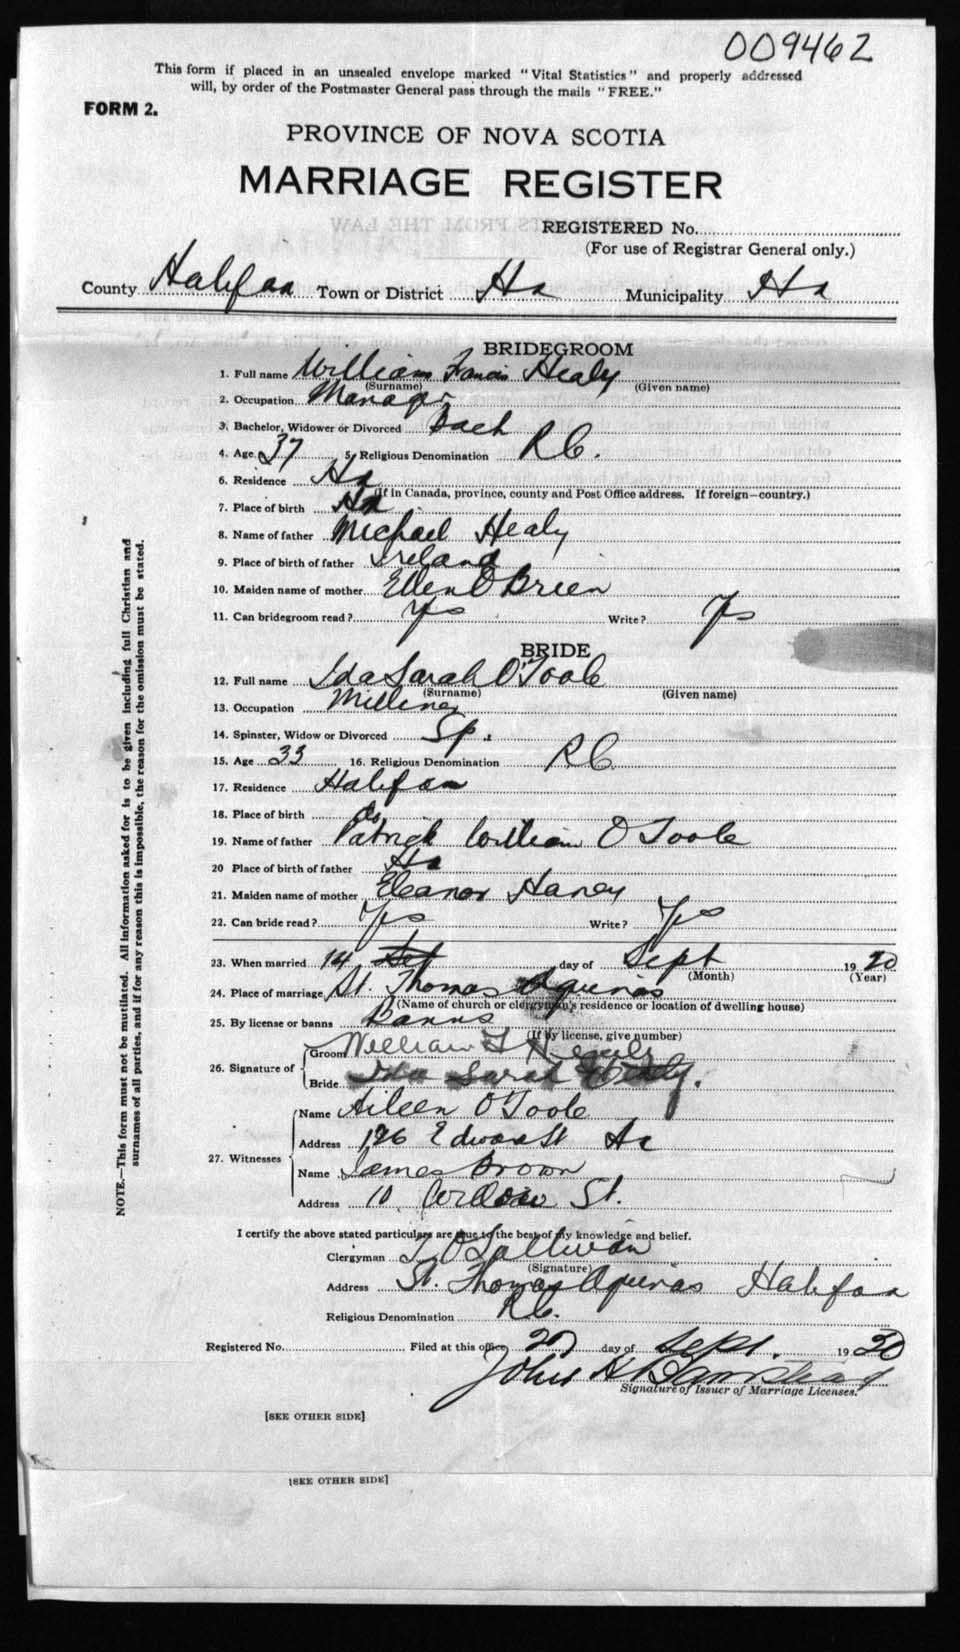 009462
This form if placed in an unsealed envelope marked "Vital Statistics" and properly addressed
will, by order of the Postmaster General pass through the mails "FREE."
FORM 2.
PROVINCE OF NOVA SCOTIA
MARRIAGE REGISTER
REGISTERED No.
(For use of Registrar General only.)
County Halifax Town or District Hx Municipality Hx
BRIDEGROOM
1. Full name William Francis Healy
(Surname) (Given name)
2. Occupation Manager
3. Bachelor, Widower or Divorced Bach
4. Age 37 5. Religious Denomination R.C.
6. Residence Hx
(If in Canada, province, county and Post Office address. If foreign—country.)
7. Place of birth Hx
8. Name of father Michael Healy
9. Place of birth of father Ireland
10. Maiden name of mother Ellen O'Brien
11. Can bridegroom read? Yes Write? Yes
BRIDE
12. Full name Ida Sarah O'Toole
(Surname) (Given name)
13. Occupation Milliner
14. Spinster, Widow or Divorced Sp.
15. Age 33 16. Religious Denomination R.C.
17. Residence Halifax
18. Place of birth Do
19. Name of father Patrick William O'Toole
20 Place of birth of father Hx
21. Maiden name of mother Eleanor Haney
22. Can bride read? Yes Write? Yes
23. When married 14 day of Sept 1920
(Month) (Year)
24. Place of marriage St. Thomas Aquinas
(Name of church or clergyman's residence or location of dwelling house)
25. By license or banns Banns
(If by license, give number)
26. Signature of Groom William F Healy
Bride Ida Sarah Healy.
27. Witnesses Name Aileen O'Toole
Address Edward St Hx
Name James Brown
Address 10 Willow St.
I certify the above stated particulars are true to the best of my knowledge and belief.
Clergyman T. O'Sullivan
(Signature)
Address St. Thomas Aquinas Halifax
Religious Denomination R.C.
Registered No. Filed at this office 20 day of Sept. 1920
John H Barnstead
Signature of Issuer of Marriage Licenses.
[SEE OTHER SIDE]
[SEE OTHER SIDE]
NOTE.—This form must not be mutilated. All information asked for is to be given including full Christian and
surnames of all parties, and if for any reason this is impossible, the reason for the omission must be stated.